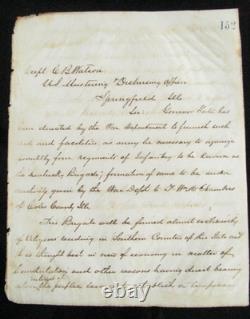 132
Capt. C. B. Watson
U.S. Mustering & Disbursing Officer
Springfield Ills
Sir Governor Yates has
been directed by the War Department to furnish such
aid and facilities as may be necessary to
equip four regiments of Infantry to be known as
the Kentucky Brigade; formation of same to be under
authority given by the War Dept to T. W. Chambers
of Coles County Ills
This Brigade will be formed almost exclusively
of Citizens residing in Southern Counties of this State and
it is thought best in view of economy in matter of
and other reasons having direct bearing
interest of
the people to establish a